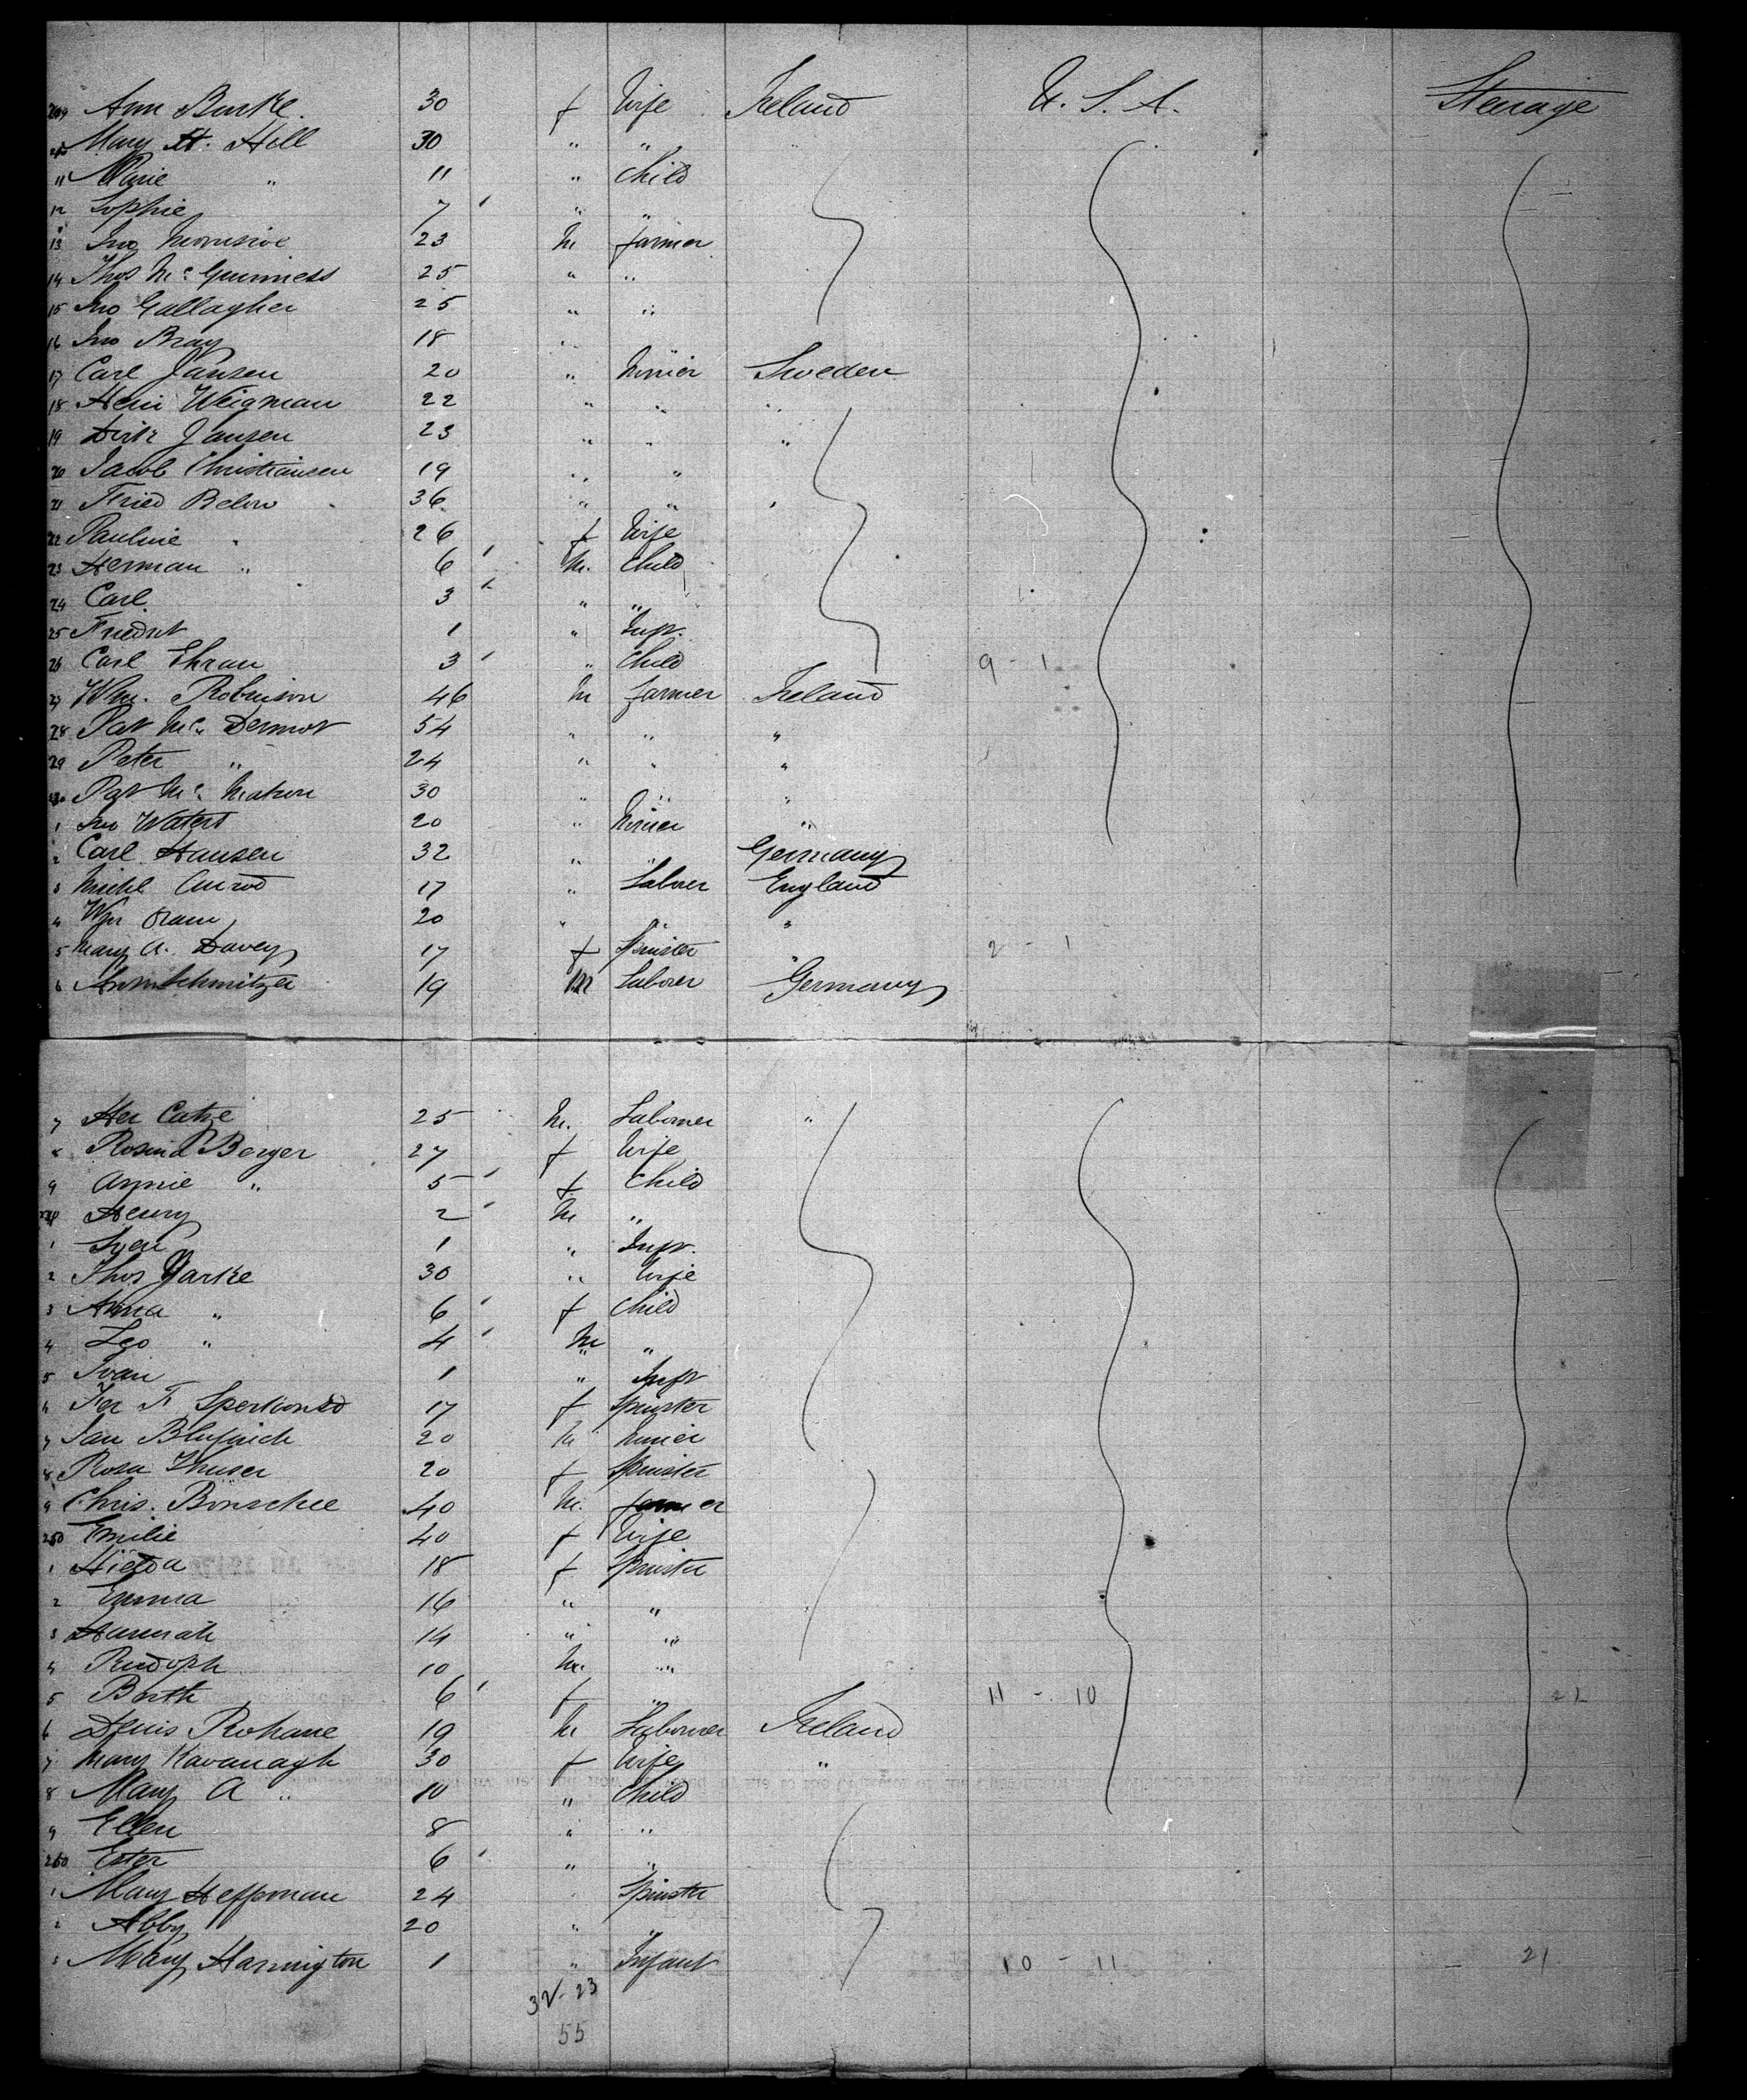 209 Ann Burke 30 f Wife Ireland U. S. A. Steerage
210 Mary H. Hill 30 " "
11 Marie " 11 " Child
12 Sophie 7 " "
13 Jno 23 M farmer
14 Thos Mc Guinness 25 " "
15 Jno Gallagher 25 " "
16 Jno Bray 18 "
17 Carl Jansen 20 " Miner Sweden
18 Weigman 22 " " "
19 Dirk Jansen 23 " " "
20 Jacob Christiansen 19 " "
21 Fried Below 36 " " "
22 Pauline " 26 f Wife
23 Herman " 6 M. Child
24 Carl 3 " "
25 1 " Inft.
26 Carl Ehran 3 " Child 9 - 1
27 Wm. Robinson 46 M farmer Ireland
28 Pat Mc Dermot 54 " " "
29 Peter " 24 " " "
30 Pat Mc Mahon 30 " " "
1 Jno Waters 20 " Miner "
2 Carl Hansen 32 " " Germany
3 Michl 17 " Laborer England
4 Wm 20 " " "
5 Mary A. Davey 17 f Spinster " 2 - 1
6 19 M Laborer Germany
7 Her Catze 25 M. Laborer "
8 Berger 27 f Wife
9 Annie " 5 f Child
240 Henry 2 M "
1 1 " Inft.
2 Thos Yarke 30 " Wife
3 Anna " 6 f Child
4 Leo " 4 M "
5 Ivan 1 " Inft
6 17 f Spinster
7 20 M Miner
8 Rosa 20 f Spinster
9 Chris. 40 M. farmer
250 Emilie 40 f Wife
1 18 f Spinster
2 Emma 16 " "
3 Hannah 14 " "
4 Rudoph 10 M. "
5 Berth 6 f " 11 - 10 21
6 Denis Rohane 19 M Laborer Ireland
7 Mary Kavanagh 30 f Wife "
8 Mary A " 10 " Child
9 Ellen 8 " "
260 Ester 6 " "
1 Mary Heffernan 24 Spinster
2 Abby 20 " "
3 Mary Harrington 1 " Infant 10 - 11 21
32 - 23
55